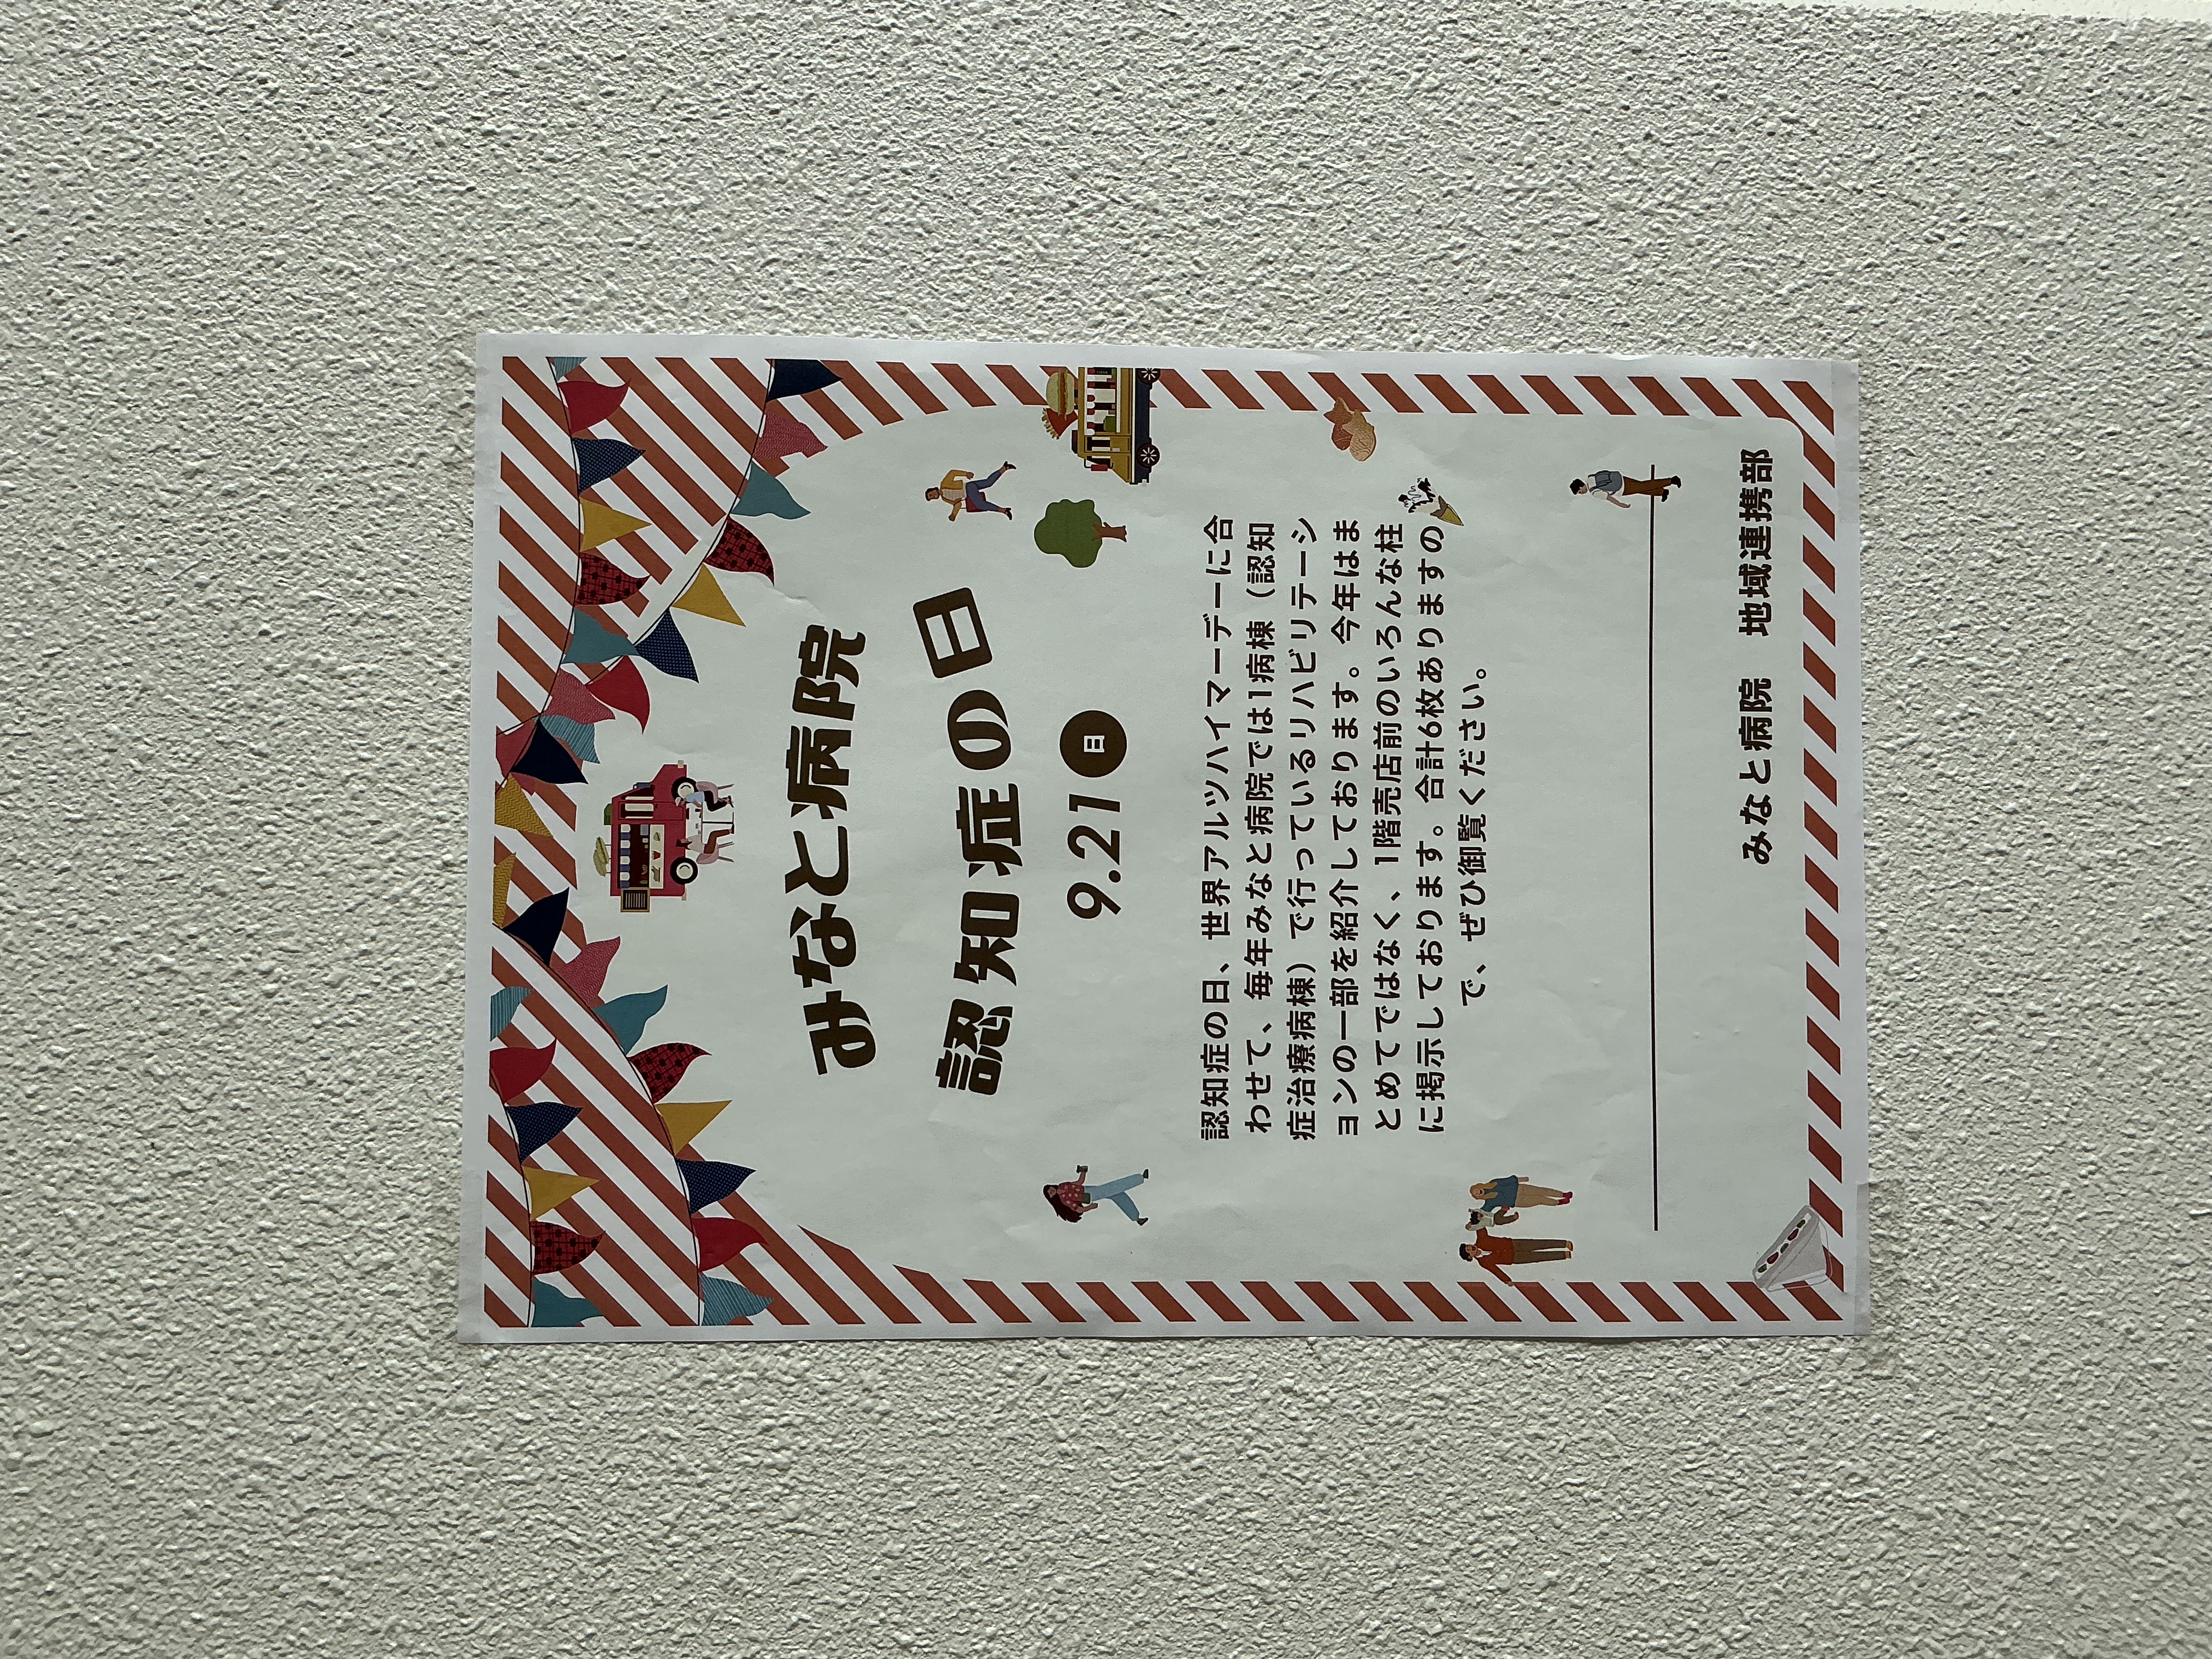 みなと病院
認知症の日
9.21 日
認知症の日、世界アルツハイマーデーに合
わせて、毎年みなと病院では1病棟（認知
症治療病棟）で行っているリハビリテーシ
ョンの一部を紹介しております。今年はま
とめてではなく、1階売店前のいろんな柱
に掲示しております。合計6枚ありますの
で、ぜひ御覧ください。
みなと病院　地域連携部